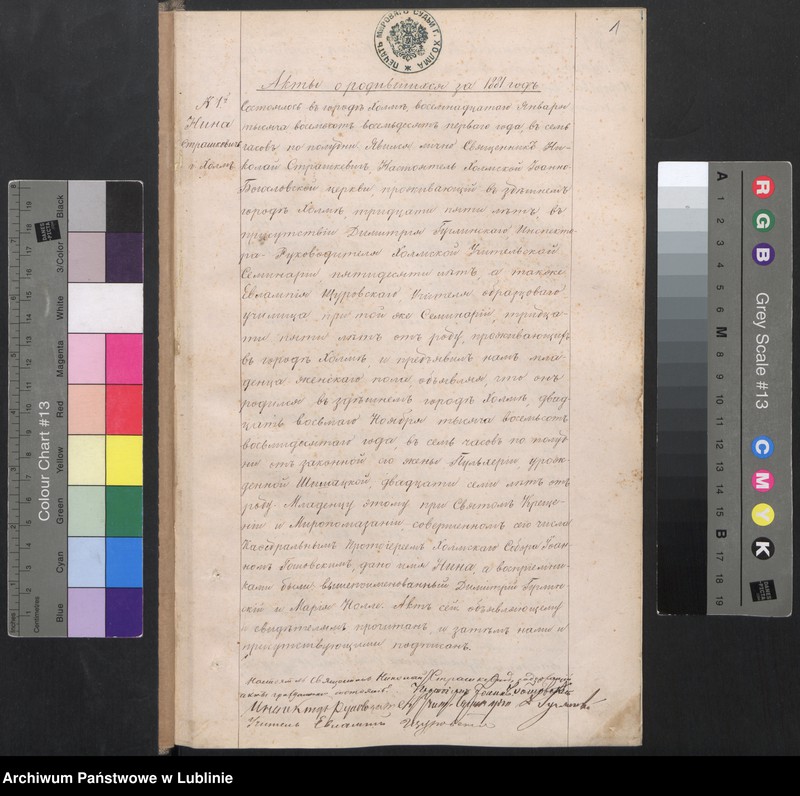 ПЕЧАТЬ МИРОВАГО СУДЬИ Г. ХОЛМА
1
Акты о родившихся за 1881 годъ
№ 1й
Нина
Страшкевичъ
г. Холмъ
Состоялось въ городѣ Холмѣ, восемнадцатаго Января
тысяча восемьсотъ восемьдесятъ перваго года, въ семь
часовъ по полудни. Явился лично Священникъ Ни-
колай Страшкевичъ, Настоятель Холмской Іоанно-
Богословской церкви проживающій въ здѣшнемъ
городѣ Холмѣ, тридцати пяти лѣтъ, въ
присутствіи Димитрія Гурлинскаго Инспекто-
ра- Руководителя Холмской Учительской
Семинаріи пятидесяти лѣтъ, а также
Евлампія Щуровскаго Учителя образцоваго
училища, при той же Семинаріи, тридца-
ти пяти лѣтъ отъ роду, проживающихъ
въ городѣ Холмѣ и предъявилъ намъ мла-
денца женскаго пола, объявляя, что онъ
родился въ здѣшнемъ городѣ Холмѣ, двад-
цать восьмаго Ноября тысяча восемьсотъ
восьмидесятаго года, въ семь часовъ по полуд-
ни отъ законной его жены Пульхеріи урож-
денной Шпилацкой, двадцати семи лѣтъ отъ
роду. Младенцу этому при Святомъ Креще-
ніи и Миропомазаніи совершенномъ сего числа
Каѳедральнымъ Протоіереемъ Холмскаго Собора Іоан-
номъ Гошовскимъ, дано имя Нина, а воспріемни-
ками были вышепоименованный Димитрій Гурлин-
скій и Марія Ноллє. Актъ сей объявляющему
и свидѣтелямъ прочитанъ, и затѣмъ нами и
присутствующими подписанъ.
Настоятель Священникъ Николай Страшкевичъ
акты гражданскаго состоянія Іоаннъ Гошовскій
Инспекторъ Руководитель
Учитель Евлампій Щуровскій
Colour Chart #13
Blue
Cyan
Green
Yellow
Red
Magenta
White
3/Color
Black
Centimetres
DANES PICTA
Grey Scale #13
R
G
B
C
M
Y
K
A
1
2
3
4
5
6
M
8
9
10
11
12
13
14
15
B
17
18
19
Archiwum Państwowe w Lublinie